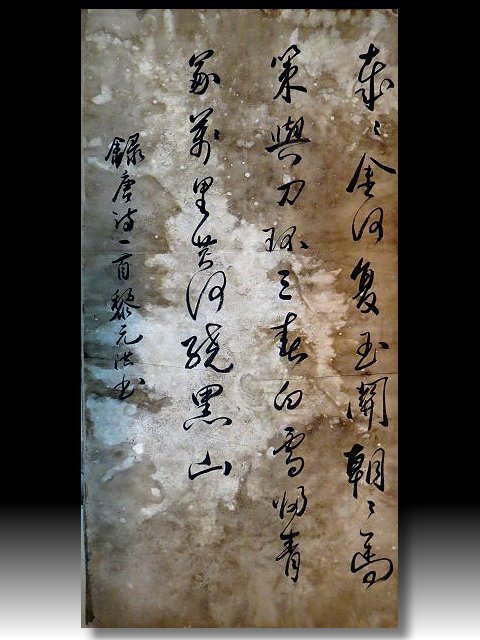 歲〻金河复玉關朝〻馬
策與刀環三春白雪歸青
冢萬里黃河繞黑山
錄唐詩一首黎元洪书